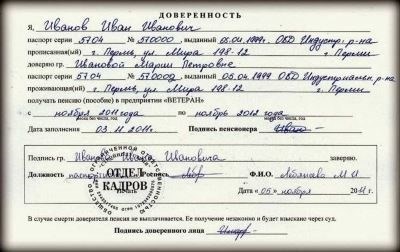 ДОВЕРЕННОСТЬ
Я, Иванов Иван Иванович
паспорт серии 5704 № 570000, выданный 05.04.1999г. ОВД Индустр. р-на
прописанный(ая) г. Пермь, ул. Мира 198-12 г. Перми
доверяю гр. Ивановой Марии Петровне
паспорт серии 5704 № 570002, выданный 05.04.1999 ОВД Индустриальн. р-на
проживающий(ая) г. Пермь, ул. Мира 198-12 г. Перми
получать пенсию (пособие) в предприятия «ВЕТЕРАН»
с ноября 2011 года по ноябрь 2012 года
Дата заполнения 03.11.2011г. Подпись пенсионера
Подпись гр. Иванова Ивана Ивановича заверяю.
Должность Роспись Ф.И.О.
ОТДЕЛ КАДРОВ
Печать
Дата «05» ноября 2011 г.
В случае смерти доверителя пенсия не выплачивается. Ее получение незаконно и будет взыскано через суд.
Подпись доверенного лица